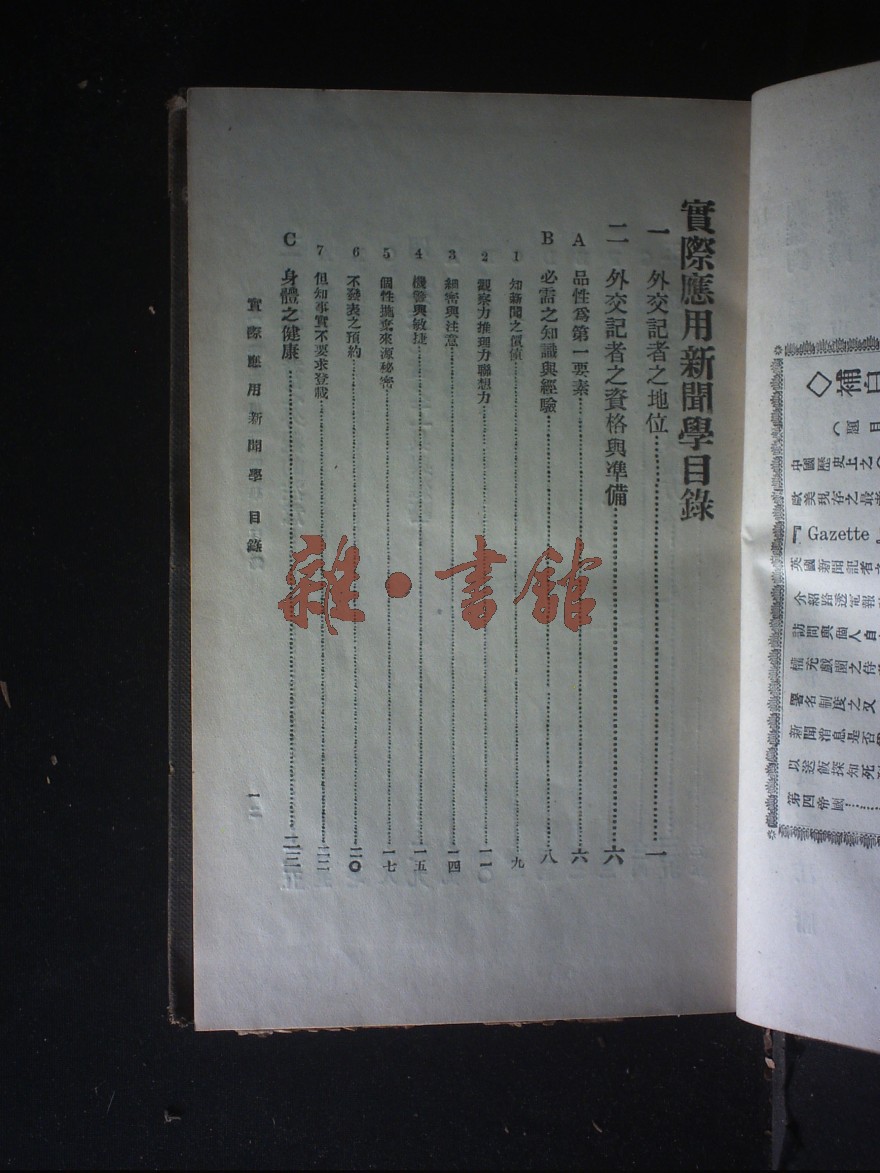 實際應用新聞學目錄
一 外交記者之地位……一
二 外交記者之資格與準備……六
A 品性爲第一要素……六
B 必需之知識與經驗……八
1 知新聞之價値……九
2 觀察力推理力聯想力……一〇
3 細密與注意……一四
4 機警與敏捷……一五
5 個性拋棄來源秘密……一七
6 不發表之預約……二〇
7 但知事實不要求登載……二二
C 身體之健康……二三
實際應用新聞學 目錄
一
雜·書館
◇補白
(題目
中國歷史上之
歐美現存之最
『Gazette』
英國新聞記者之
介紹路透電報
訪問與個人自
充戲園之侍
署名制度之又
新聞消息是否
以送飯探知死
第四帝國……